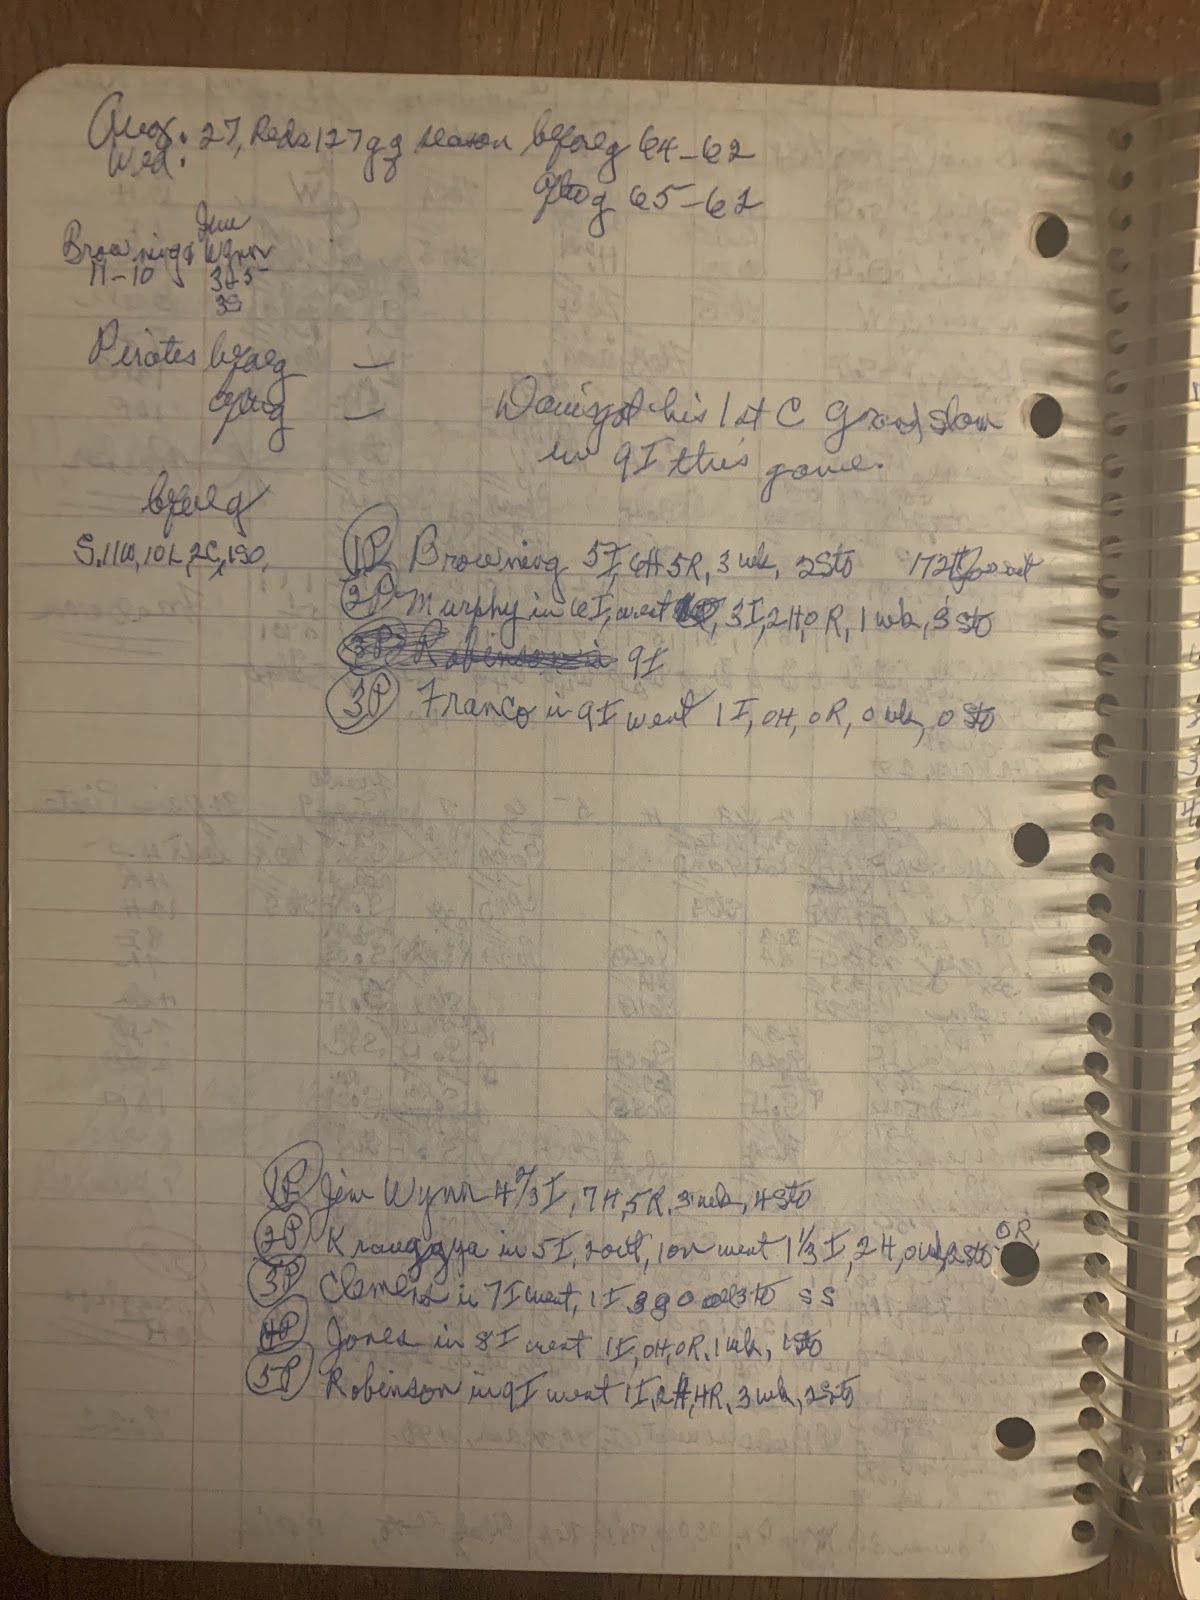 Aug. 27, Reds 127 g season befoeg 64-62
Wed.
aftog 65-62
Jim
Browning & Wynn
11-10 325
3S
Pirates befoeg —
aftog —
Davis got his 1st C Grand slam
in 9I this game.
befoeg
S, 11W, 10L, 2C, 1SO,
1P Browning 5I, 6H 5R, 3 wk, 2Sto 172
2P Murphy in 6I, went 3I, 2H, 0R, 1 wk, 3 Sto
3P Robinson in 9I
3P Franco in 9I went 1I, 0H, 0R, 0 wk, 0 Sto
1P Jim Wynn 4 2/3 I, 7H, 5R, 3 wk, 4 Sto
0R,
2P in 5I, 2 out, 1 on went 1 1/3 I, 2H, 0 wk, 2 Sto
3P Clements in 7I went, 1I 3 Sto
4P Jones in 8I went 1I, 0H, 0R, 1 wk, 1 Sto
5P Robinson in 9I went 1I, 2H, 4R, 3 wk, 2 Sto